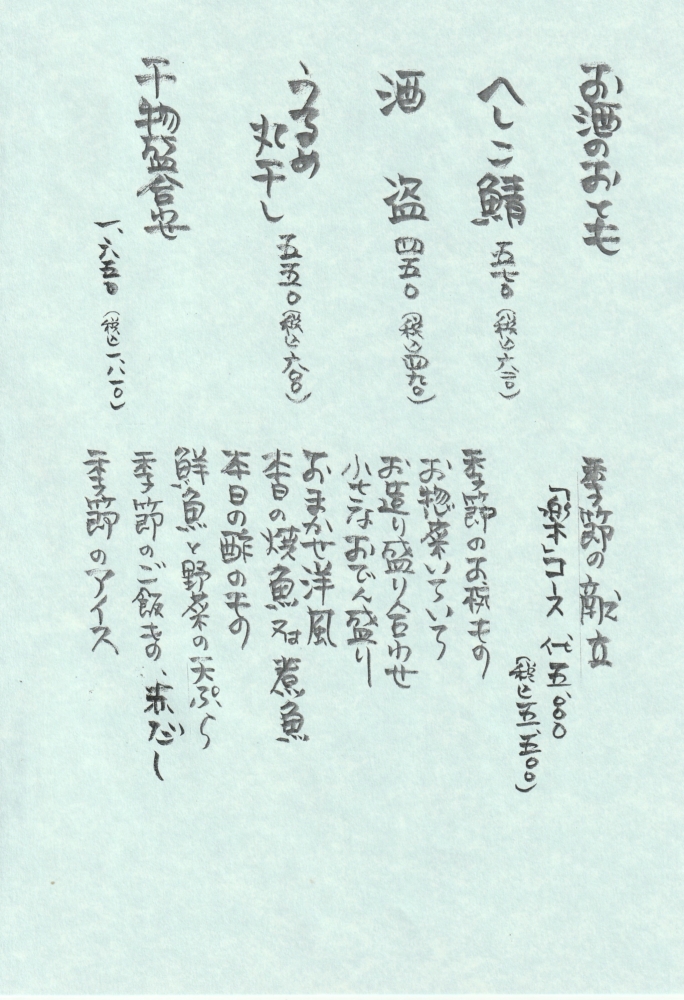 お酒のおとも
へしこ鯖 五七〇(税込六二〇)
酒盗 四五〇(税込四九〇)
うるめ
丸干し 五五〇(税込六〇〇)
干物盛合せ
一、六五〇(税込一、八一〇)
季節の献立
「楽」コース 代五、〇〇〇
(税込五、五〇〇)
季節のお椀もの
お惣菜いろいろ
お造り盛り合わせ
小さなおでん盛り
おまかせ洋風
本日の焼魚又は煮魚
本日の酢のもの
鮮魚と野菜の天ぷら
季節のご飯もの、赤だし
季節のアイス